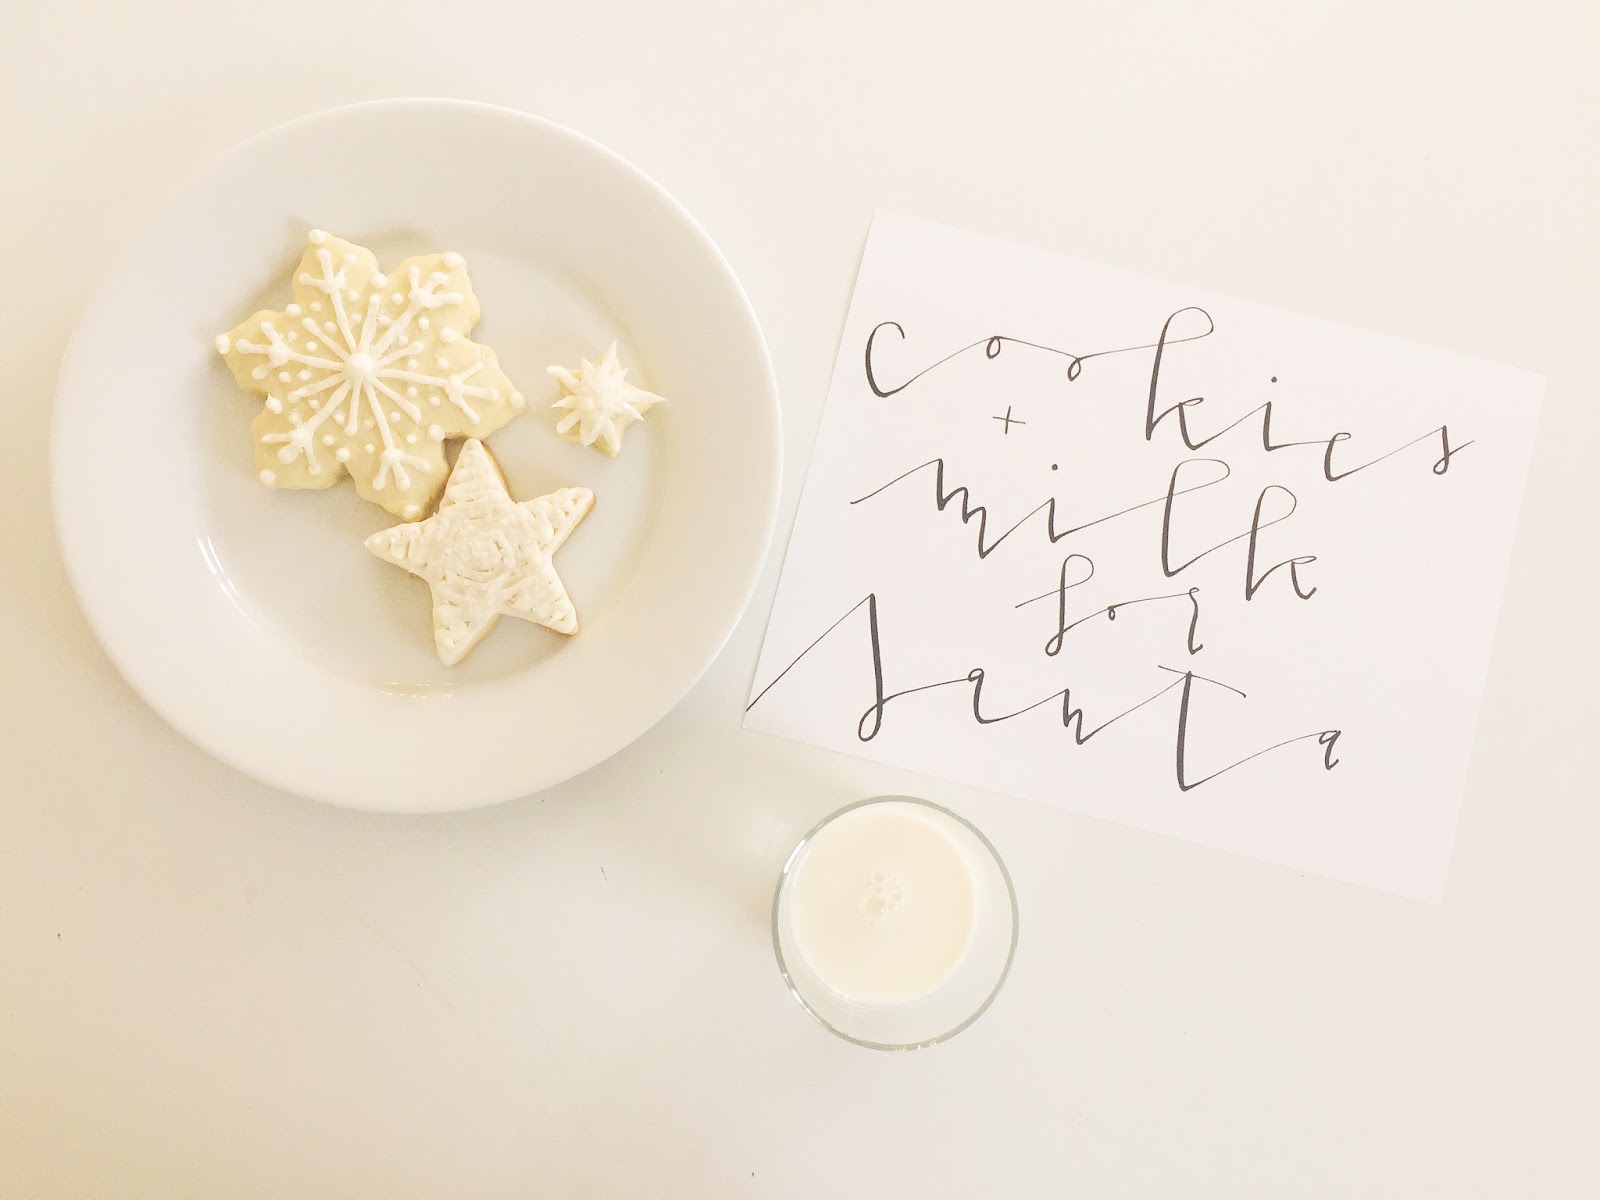 cookies
+
milk
for
Santa